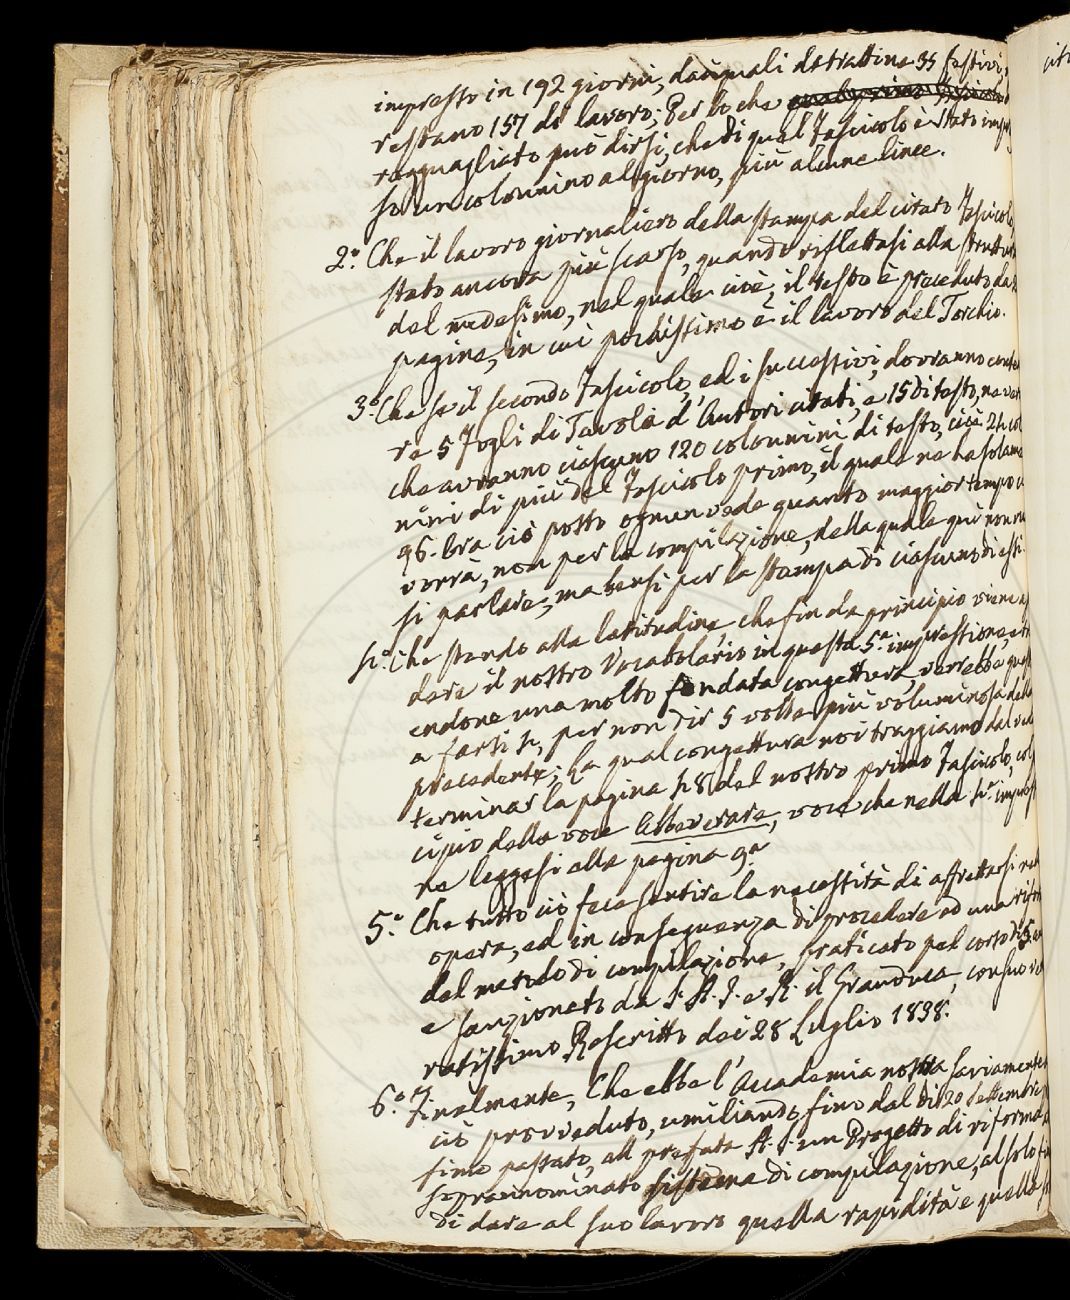 impresso in 192 giorni, dai quali detrattine 35 festivi,
restano 157 di lavoro; Per lo che
ragguagliato può dirsi, che di quel Fascicolo è stato impres
so un colonnino al giorno, più alcune linee.
2.° Che il lavoro giornaliero della stampa del citato Fascicolo
stato ancora più scarso, quando riflettasi alla struttura
del medesimo, nel quale cioè, il testo è preceduto da
pagine, in cui pochissimo è il lavoro del Torchio.
3.° Che se il secondo Fascicolo, ed i successivi, dovranno conte
re 5 Fogli di Tavola d'Autori citati, e 15 di testo, ne ver
che avranno ciascuno 120 colonnini di testo, cioè 24 col
nini di più del Fascicolo primo, il quale ne ha solame
96. Ora ciò posto ognun vede quanto maggior tempo
vorrà, non per la compilazione, della quale qui non vu
si parlare; ma bensì per la stampa di ciascuno di essi.
4.° Che stando alla latitudine, che fin da principio viene a
dare il nostro Vocabolario in questa 5.ª impressione,
endone una molto fondata congettura, verrebbe quest
a farsi 4, per non dir 5 volte più voluminosa della
precedente; La qual congettura noi traggiamo dal ved
terminar la pagina 48 del nostro primo Fascicolo, col
cipio della voce Abbeverare, voce che nella 4.ª impress
ne leggesi alla pagina 9.ª
5.° Che tutto ciò fece sentire la necessità di affrettarsi nell
opera, ed in conseguenza di procedere ad una rifor
del metodo di compilazione, praticato pel corso di
e sanzionato da S. A. I. e R. il Granduca, con suo ve
ratissimo Rescritto dei 28 Luglio 1838.
6.° Finalmente, Che ebbe l'Accademia nostra saviamente
ciò provveduto, umiliando fino dal dì 20 Settembre
simo passato, alla prefata A. S. un Progetto di riforma
soprannominato sistema di compilazione, al solo
di dare al suo lavoro quella rapidità e quella